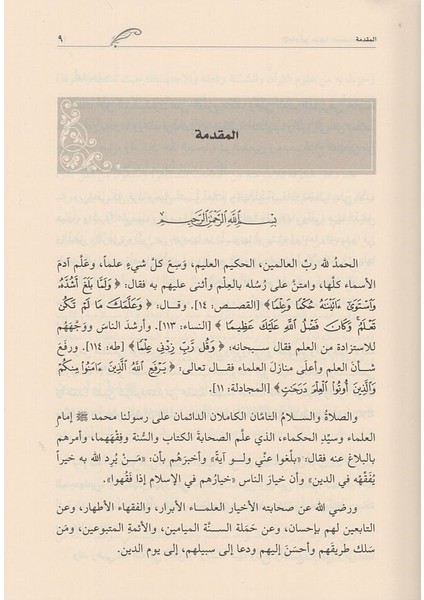 المقدمة
٩
المقدمة
بسم الله الرحمن الرحيم
الحمدُ لله ربِّ العالمين، الحكيم العليم، وَسِعَ كلَّ شيءٍ علماً، وعَلَّم آدمَ
الأسماء كلَّها، وامتنَّ على رُسُله بالعِلْم وأثنى عليهم به فقال: ﴿ وَلَمَّا بَلَغَ أَشُدَّهُ
وَاسْتَوَىٰ ءَاتَيْنَاهُ حُكْمًا وَعِلْمًا﴾ [القصص: ١٤]. وقال: ﴿ وَعَلَّمَكَ مَا لَمْ تَكُن
تَعْلَمُ ۚ وَكَانَ فَضْلُ اللَّهِ عَلَيْكَ عَظِيمًا ﴾ [النساء: ١١٣]. وأرشدَ الناسَ ووَجَّهَهُم
للاستزادة من العلم فقال سبحانه: ﴿ وَقُل رَّبِّ زِدْنِي عِلْمًا﴾ [طه: ١١٤]. ورفَعَ
شأنَ العلم وأعلى منازلَ العلماء فقال تعالى: ﴿ يَرْفَعِ اللَّهُ الَّذِينَ ءَامَنُوا مِنكُمْ
وَالَّذِينَ أُوتُوا الْعِلْمَ دَرَجَاتٍ﴾ [المجادلة: ١١].
والصلاةُ والسلامُ التامَّان الكاملان الدائمان على رسولنا محمدٍ ﷺ إمام
العلماء وسيِّدِ الحكماء، الذي علَّم الصحابةَ الكتاب والسُّنة وفِقْهَهما، وأمرهم
بالبلاغ عنه فقال: «بلِّغوا عنِّي ولو آيةً» وأخبرَهُم بأن: «مَنْ يُرِدِ الله به خيراً
يُفَقِّهْه في الدين» وأن خيارَ الناس «خيارُهم في الإسلام إذا فَقُهوا».
ورضي الله عن صحابته الأخيار العلماء الأبرار، والفقهاء الأطهار، وعن
التابعين لهم بإحسان، وعن حَمَلة السنَّة الميامين، والأئمةِ المتبوعين، ومَن
سَلك طريقَهم وأحسَنَ إليهم ودعا إلى سبيلهم، إلى يوم الدين.